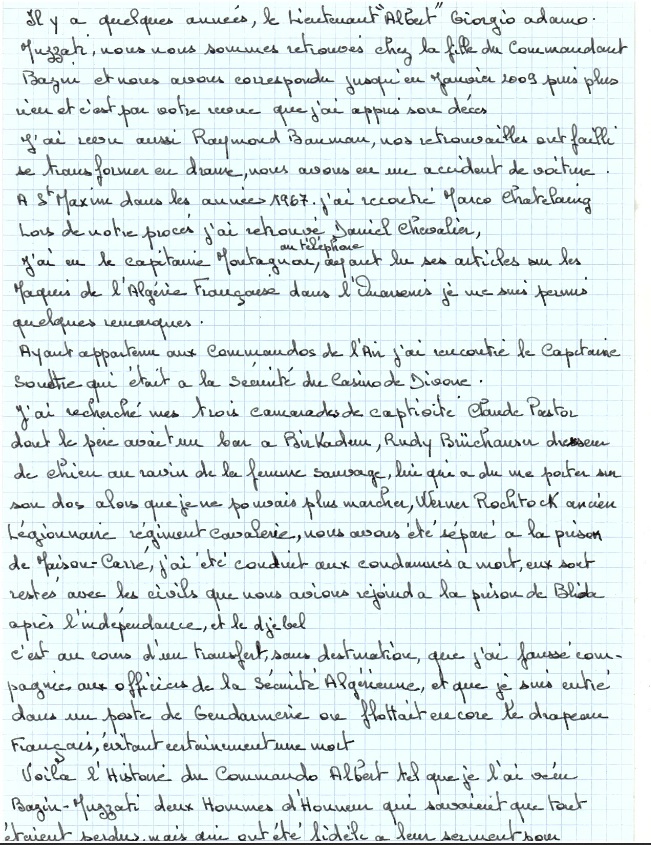 Il y a quelques années, le Lieutenant "Albert" Giorgio adamo.
Muzzati, nous nous sommes retrouvés chez la fille du Commandant
Bazin et nous avons correspondu jusqu'en Janvier 2009 puis plus
rien et c'est par votre revue que j'ai appris son décès
J'ai revu aussi Raymond Bauman, nos retrouvailles ont failli
se transformer en drame, nous avons eu un accident de voiture.
A St Maxim dans les années 1967. j'ai recontré Marco Chatelaing
Lors de notre procès j'ai retrouvé Daniel Chevalier,
au téléphone
J'ai eu le capitaine Montagnon, ayant lu ses articles sur les
Maquis de l'Algérie Française dans l'Ouarsenis je me suis permis
quelques remarques.
Ayant appartenu aux Commandos de l'Air j'ai rencontré le Capitaine
qui était a la sécurité du Casino de Divone.
J'ai recherché mes trois camarades de captivité Claude Pastor
dont le père avait un bar a Birkadem, Rudy dresseur
de chien au ravin de la femme sauvage, lui qui a du me porter sur
son dos alors que je ne pouvais plus marcher, Werner Rochtock ancien
Légionnaire régiment Cavalerie, nous avons été séparé a la prison
de Maison-Carré, j'ai été conduit aux condamnés a mort, eux sont
restés avec les civils que nous avions rejoind a la prison de Blida
après l'indépendance, et le djebel
c'est au cours d'un transfert, sans destination, que j'ai faussé com-
pagnie aux officiers de la Sécurité Algérienne, et que je suis entré
dans un poste de Gendarmerie ou flottait encore le drapeau
Français, évitant certainement une mort
Voilà l'Histoire du Commando Albert tel que je l'ai vécu
Bazin-Muzzati deux Hommes d'Honneur qui savaient que tout
étaient perdus, mais qui ont été fidèle a leur serment son